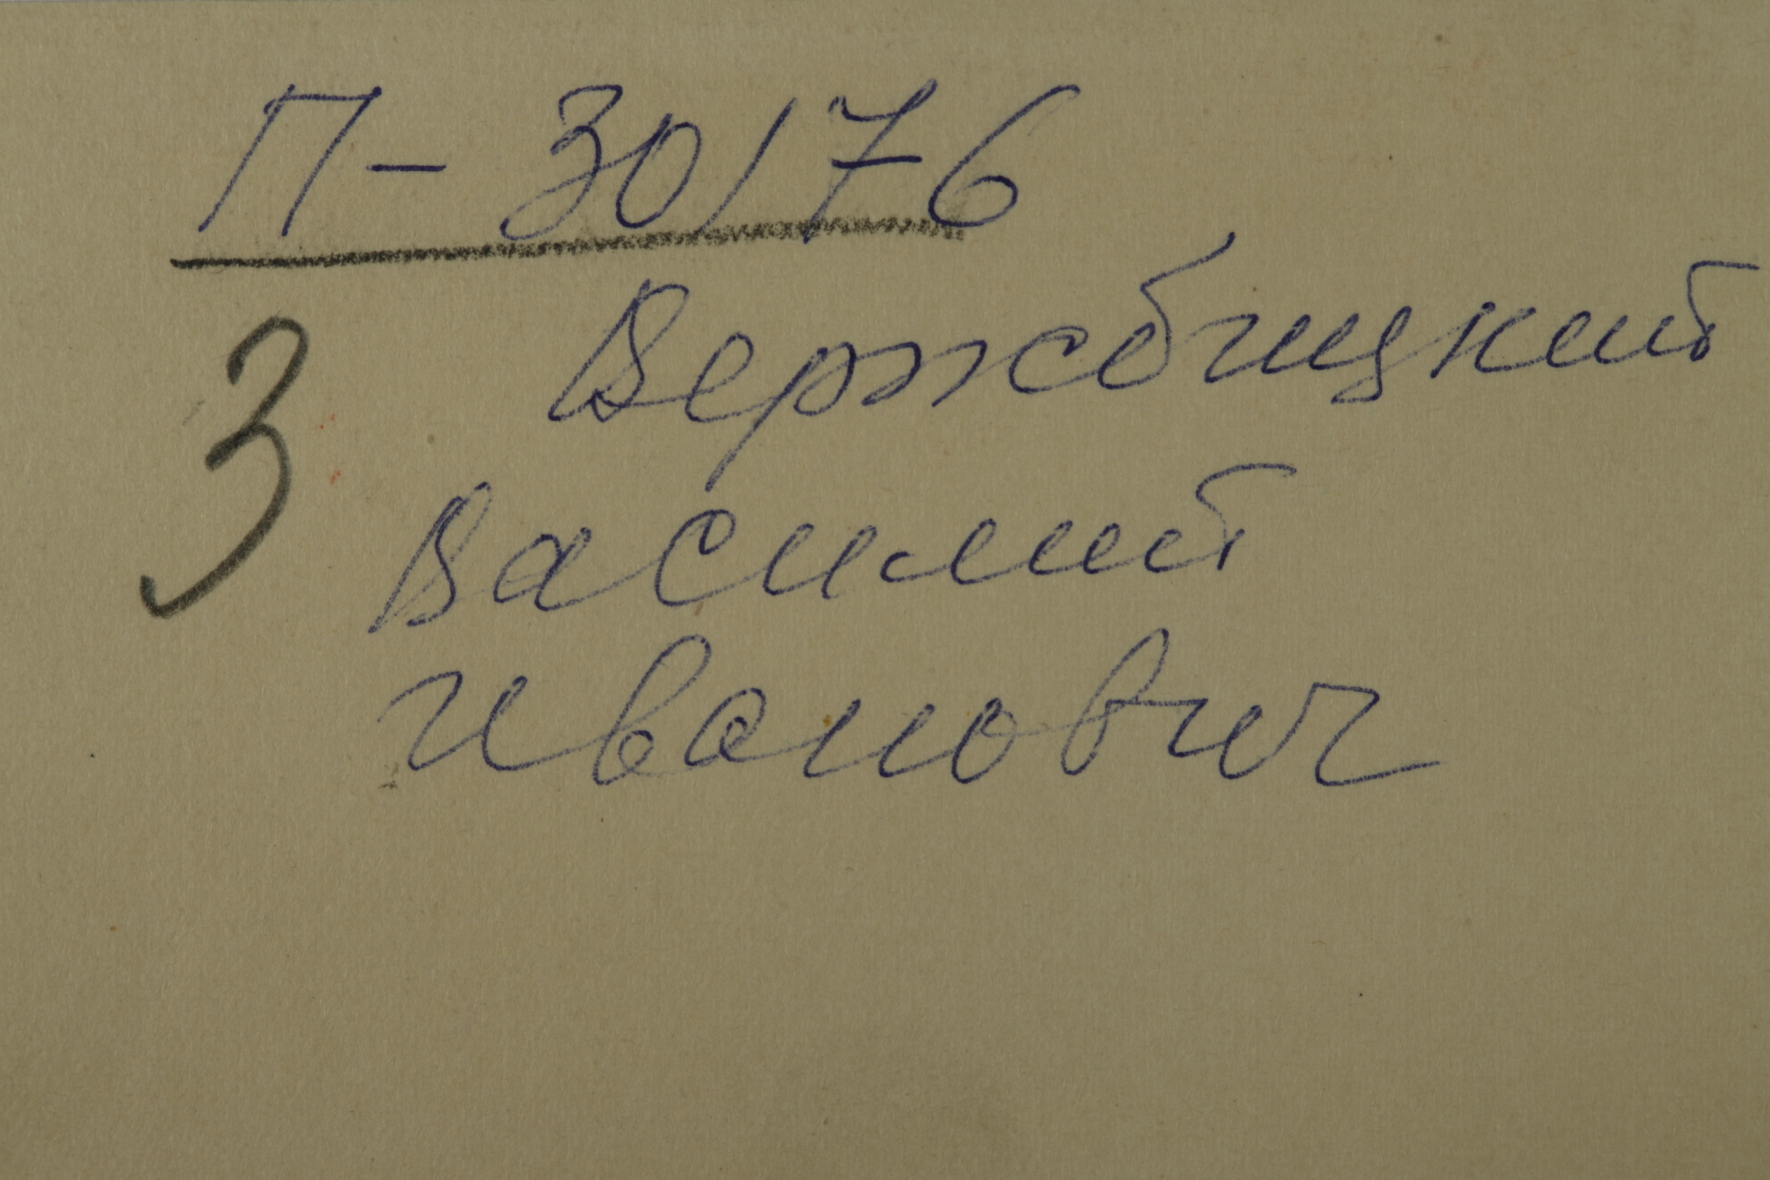 П - 30176
3
Вержбицкий
Василий
Иванович